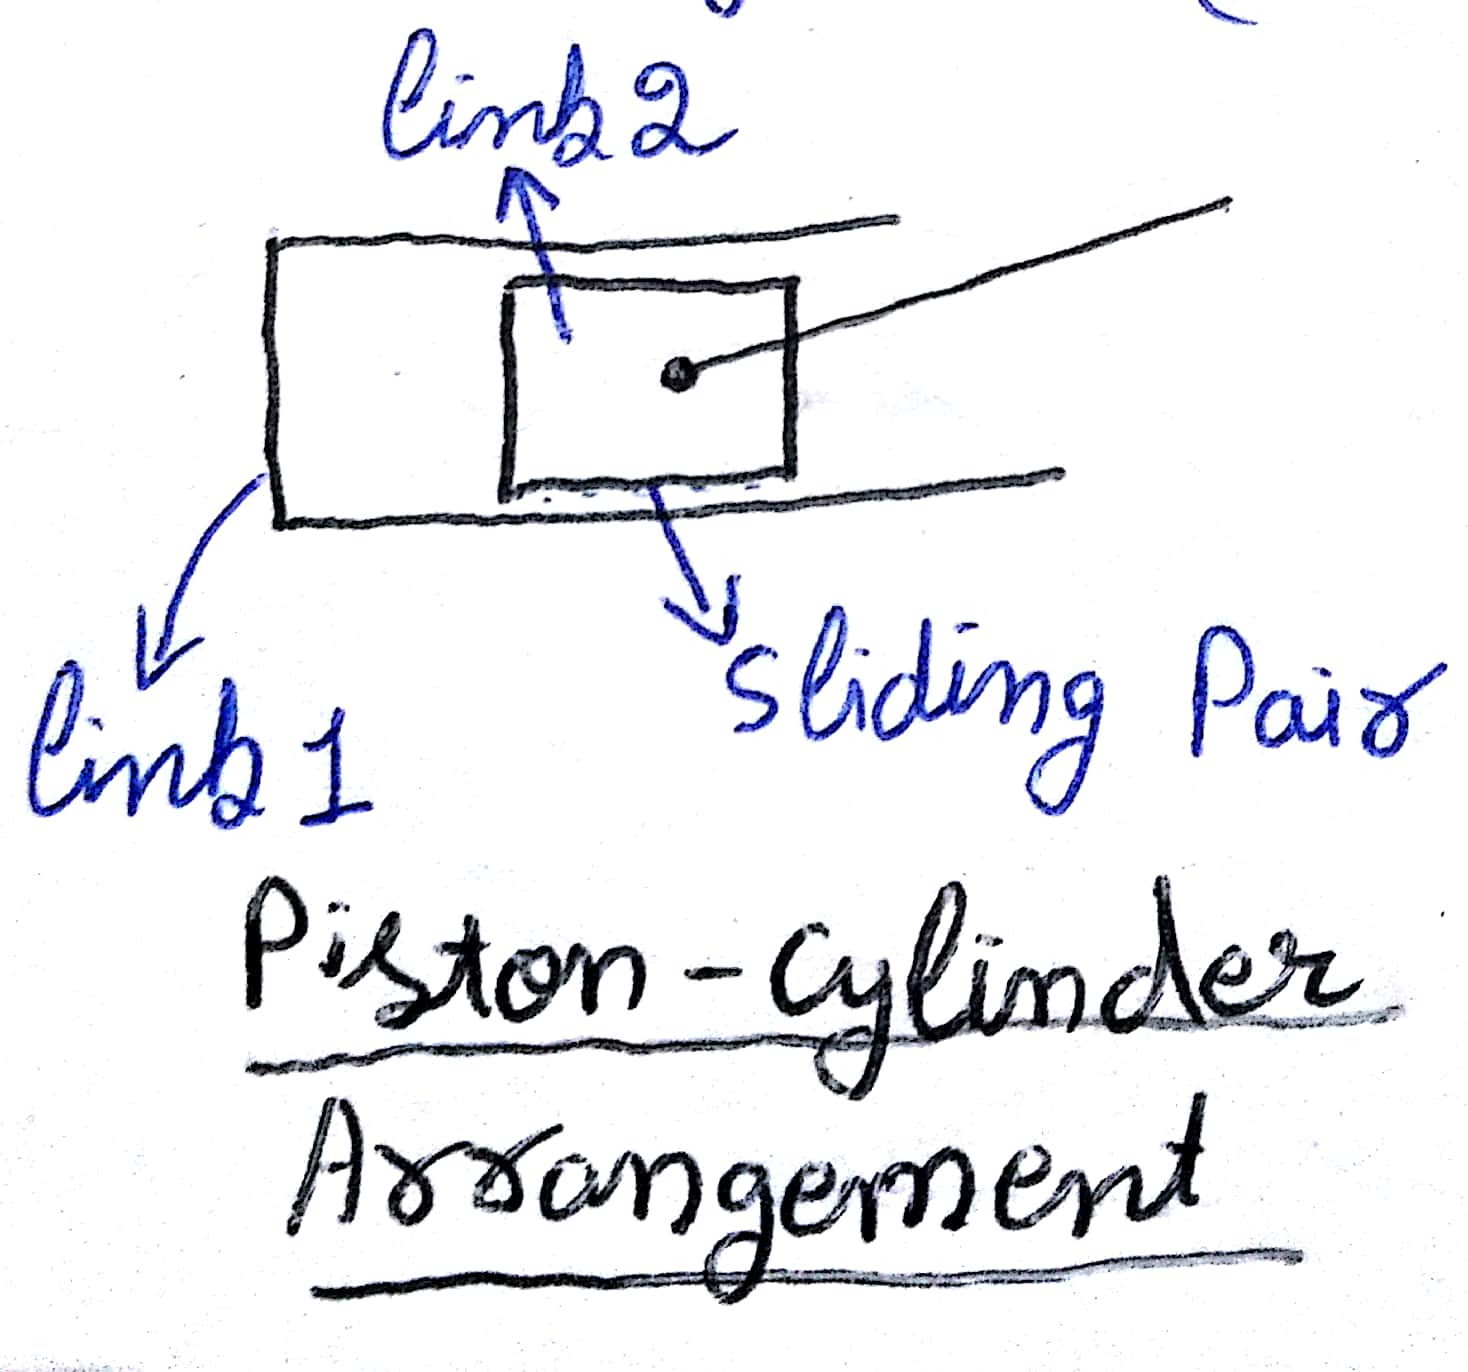 link 2
link 1
Sliding Pair
Piston-Cylinder
Arrangement